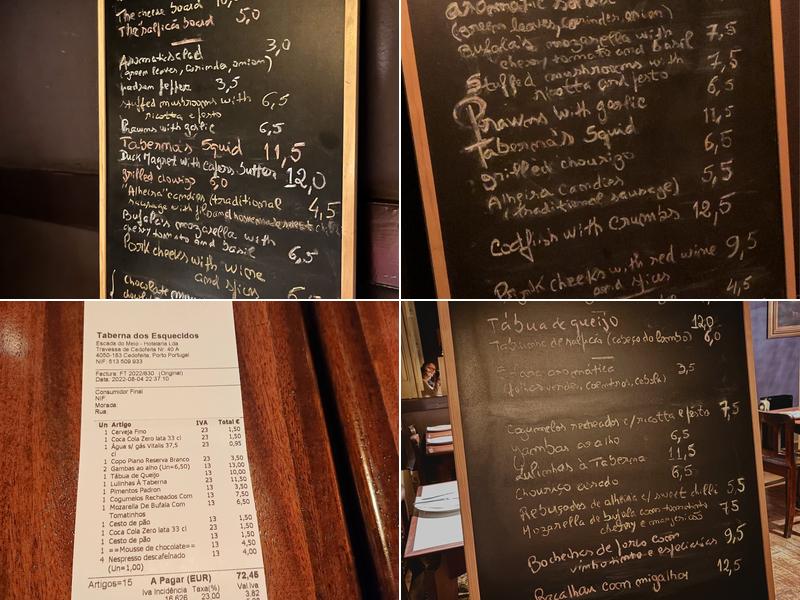 The cheese board 10,
The salpicão board 5,0
Aromatic salad 3,0
(green leaves, coriander, onion)
padron pepper 3,5
stuffed mushrooms with 6,5
ricotta e pesto
Prawns with garlic 6,5
Taberna's Squid 11,5
Duck Magret with butter 12,0
grilled chouriço 5,0
"Alheira" candies (traditional 4,5
sausage with
Bufala's mozarella with
cherry tomato and basil 6,5
Pork cheeks with wine
and spices
chocolate
aromatic salad
(green leaves, coriander, onion)
Bufala's mozarella with 7,5
cherry tomato and basil
Stuffed mushrooms with 7,5
ricotta and pesto
Prawns with garlic 6,5
Taberna's Squid 11,5
grilled chouriço 6,5
Alheira candies 5,5
(traditional sausage)
codfish with crumbs 12,5
Pork cheeks with red wine 9,5
and spices 4,5
Taberna dos Esquecidos
Escada do Meio - Hotelaria Lda
Travessa de Cedofeita Nr. 40 A
4050-183 Cedofeita, Porto Portugal
NIF: 513 509 933
Factura: FT 2022/830 (Original)
Data: 2022-08-04 22:37:10
Consumidor Final
NIF:
Morada:
Rua:
Un Artigo IVA Total €
1 Cerveja Fino 23 1,50
1 Coca Cola Zero lata 33 cl 23 1,50
1 Água s/ gás Vitalis 37,5 23 0,95
cl
1 Copo Plano Reserva Branco 23 3,50
2 Gambas ao alho (Un=6,50) 13 13,00
1 Tábua de Queijo 13 10,00
1 Lulinhas À Taberna 23 11,50
1 Pimentos Padron 13 3,50
1 Cogumelos Recheados Com 13 7,50
1 Mozarela De Bufala Com 13 6,50
Tomatinhos
1 Cesto de pão 13 1,50
1 Coca Cola Zero lata 33 cl 23 1,50
1 Cesto de pão 13 1,50
1 ==Mousse de chocolate== 13 4,50
4 Nespresso descafeinado 13 4,00
(Un=1,00)
Artigos=15 A Pagar (EUR) 72,45
Iva Incidência Taxa(%) Val.Iva
16,626 23,00 3,82
Tábua de queijo 12,0
(cabeça do lombo) 6,0
aromática 3,5
coentros, cebola)
Cogumelos recheados c/ricotta e pesto 7,5
Gambas ao alho 6,5
Lulinhas à Taberna 11,5
Chouriço assado 6,5
Rebuçados de alheira c/ sweet chilli 5,5
Mozarella de bufala com tomate 7,5
cherry e manjericão
Bochechas de porco com 9,5
vinho tinto e especiarias
Bacalhau com migalhas 12,5